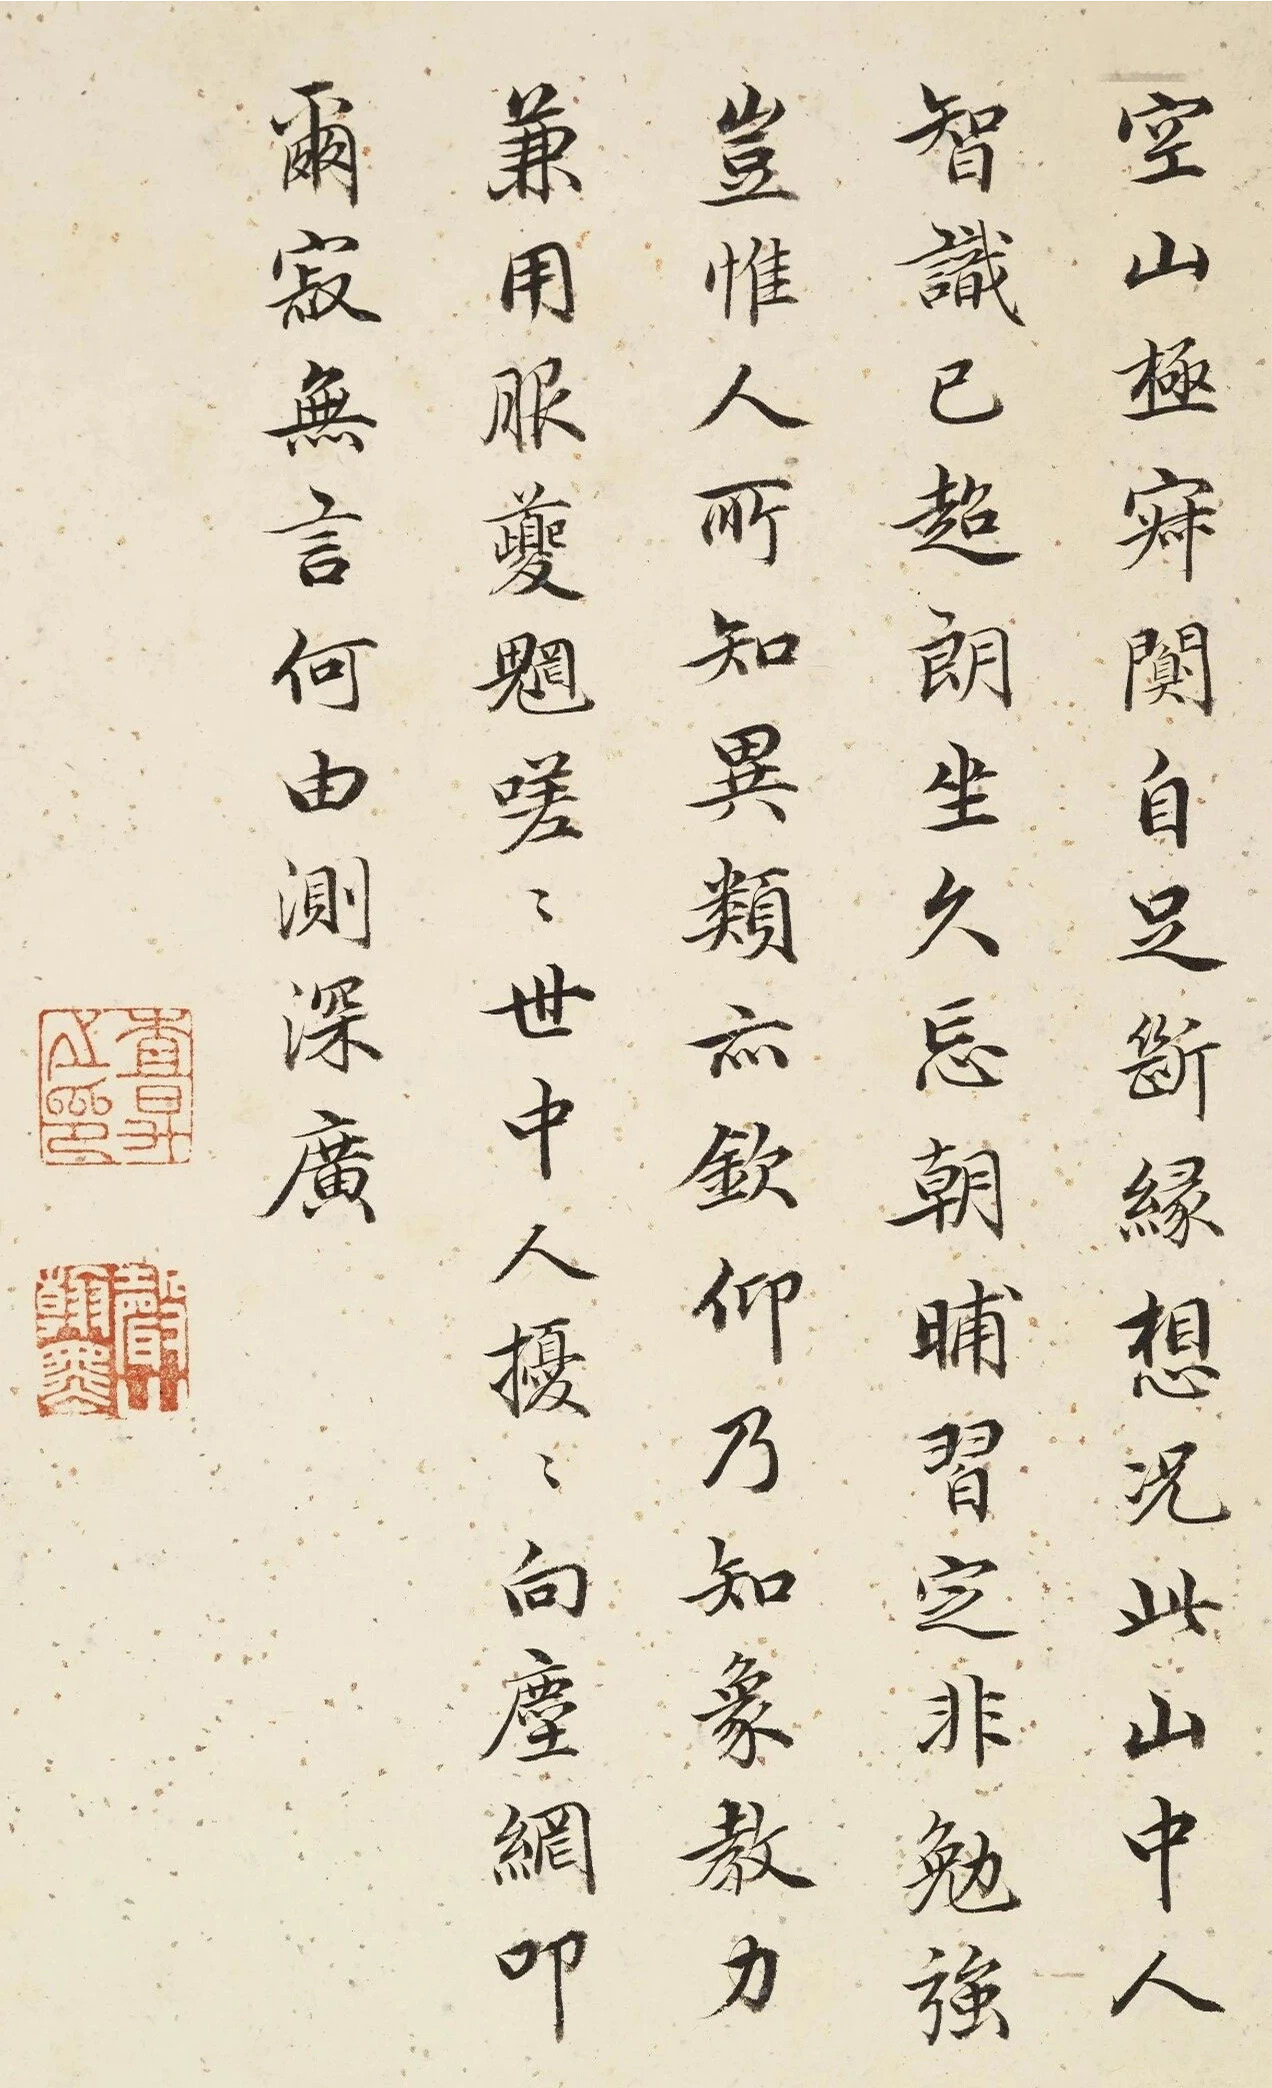 空山極寂闃自足斷緣想況此山中人
智識已超朗坐久忘朝晡習定非勉強
豈惟人所知異類亦欽仰乃知象教力
兼用服夔魍嗟〻世中人擾〻向塵網叩
爾寂無言何由測深廣
查昇之印
聲山翰墨